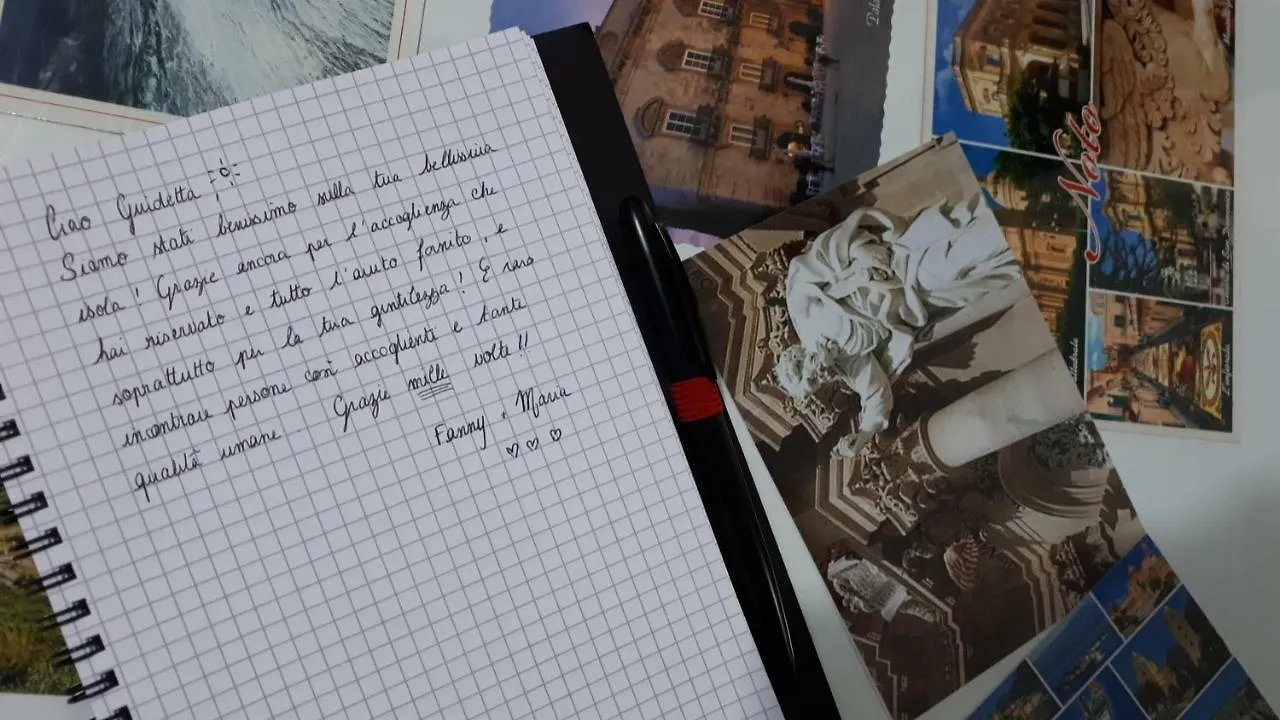 Ciao Guidetta
Siamo stati benissimo sulla tua bellissima
isola! Grazie ancora per l'accoglienza che
hai riservato e tutto l'aiuto fornito, e
soprattutto per la tua gentilezza! È raro
incontrare persone così accogliente e tante
qualità umane. Grazie mille volte!!
Fanny e Maria
Noto